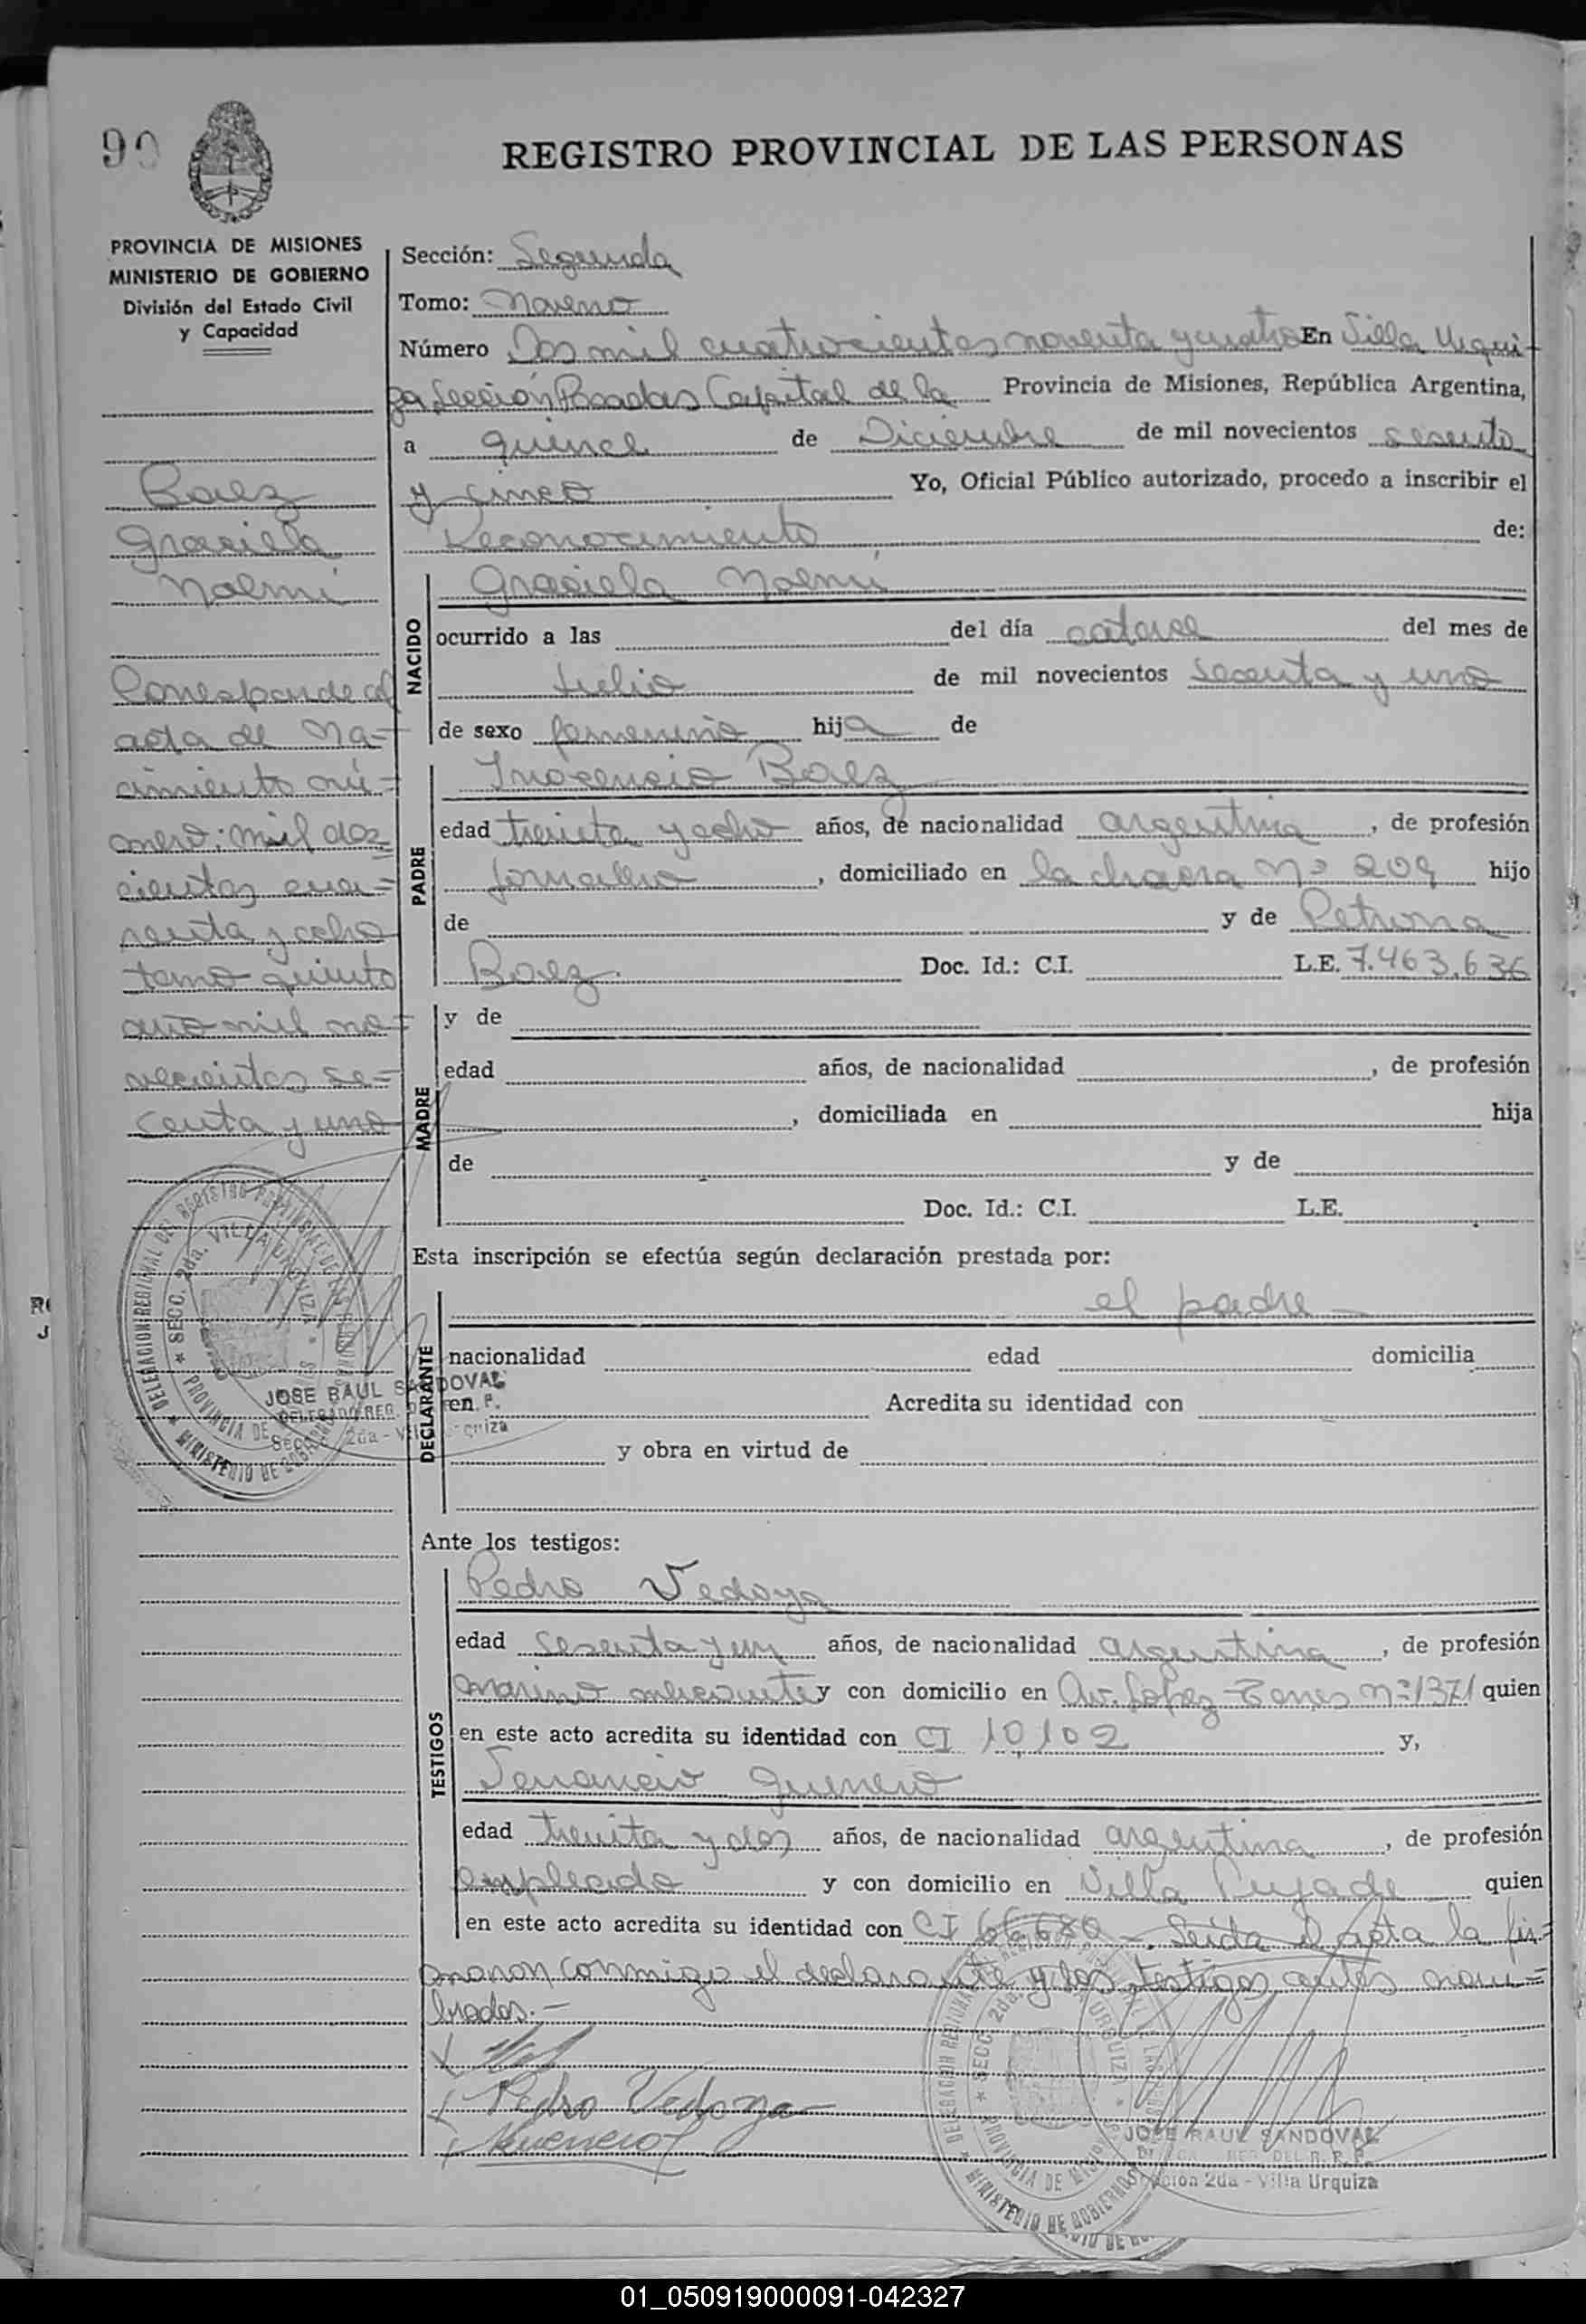 90
REGISTRO PROVINCIAL DE LAS PERSONAS
PROVINCIA DE MISIONES
MINISTERIO DE GOBIERNO
División del Estado Civil
y Capacidad
Baez
Graciela
Noemí
Corresponde al
acta de Na=
cimiento nú=
mero: mil dos
cientos cua=
renta y ocho
tomo quinto
año mil no=
vecientos se=
centa y uno
Sección: Segunda
Tomo: Noveno
Número Dos mil cuatrocientos noventa y cuatro En Villa Urqui-
za Sección Posadas Capital de la Provincia de Misiones, República Argentina,
a quince de Diciembre de mil novecientos sesenta
y cinco Yo, Oficial Público autorizado, procedo a inscribir el
Reconocimiento de:
NACIDO
Graciela Noemí
ocurrido a las del día catorce del mes de
Julio de mil novecientos secenta y uno
de sexo femenino hija de
PADRE
Inocencio Baez
edad treinta y ocho años, de nacionalidad argentina, de profesión
jornalero, domiciliado en la chacra Nº 209 hijo
de y de Petrona
Baez. Doc. Id.: C.I. L.E. 7.463.636
MADRE
y de
edad años, de nacionalidad , de profesión
, domiciliada en hija
de y de
Doc. Id.: C.I. L.E.
Esta inscripción se efectúa según declaración prestada por:
DECLARANTE
el padre
nacionalidad edad domicilia
en Acredita su identidad con
y obra en virtud de
DELEGACION REGIONAL DEL REGISTRO PROVINCIAL DE LAS PERSONAS
* SECC. 2da. VILLA URQUIZA *
PROVINCIA DE MISIONES
* MINISTERIO DE GOBIERNO
JOSE RAUL SANDOVAL
DELEGADO REG.
Secc. 2da - Villa Urquiza
Ante los testigos:
TESTIGOS
Pedro Vedoya
edad sesenta y un años, de nacionalidad argentina, de profesión
marino mercante y con domicilio en Av. Lopez Torres Nº 1371 quien
en este acto acredita su identidad con CI 10,102 y,
Venancio Guerrero
edad treinta y dos años, de nacionalidad argentina, de profesión
empleado y con domicilio en Villa Pujade quien
en este acto acredita su identidad con CI 66680 -. Leída el acta la fir=
maron conmigo el declarante y los testigos antes nom=
brados.-
Pedro Vedoya
Guerrero
DELEGACION REGIONAL
* SECC. 2da. URQUIZA *
PROVINCIA DE MISIONES
* MINISTERIO DE GOBIERNO
JOSE RAUL SANDOVAL
REG. DEL R. P. P.
Sección 2da - Villa Urquiza
01_050919000091-042327